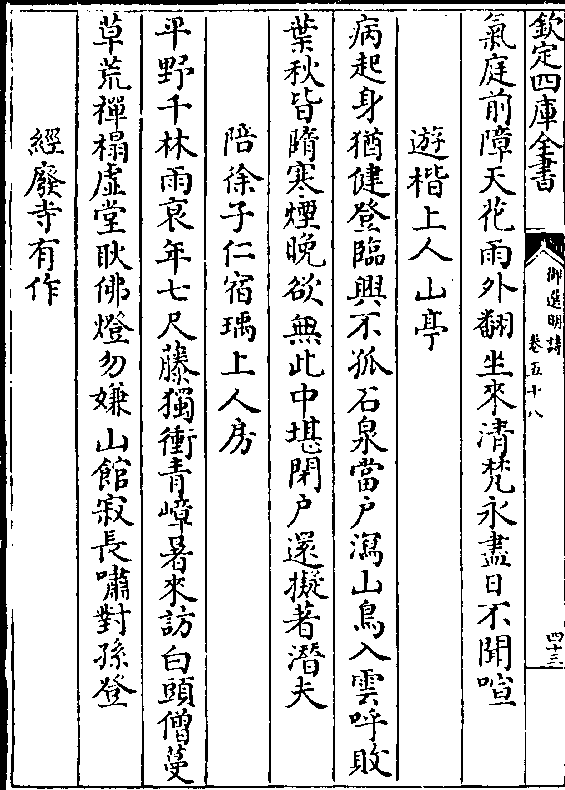 欽定四庫全書
御選明詩
卷五十八
四十三
氣庭前障天花雨外翻坐來清梵永盡日不聞喧
遊楷上人山亭
病起身猶健登臨興不狐石泉當户瀉山鳥入雲呼敗
葉秋皆隋寒煙晚欲無此中堪閉户還擬著潛夫
陪徐子仁宿瑀上人房
平野千林雨衰年七尺藤獨衝青嶂暑來訪白頭僧蔓
草荒禪榻虛堂耿佛燈勿嫌山館寂長嘯對孫登
經廢寺有作